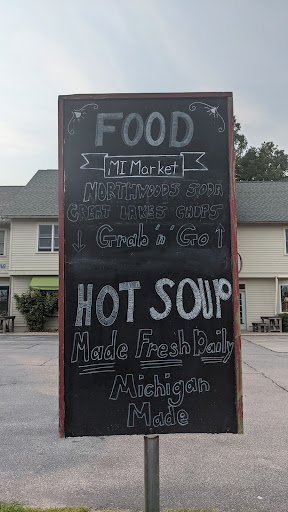 FOOD
MI Market
NORTHWOODS SODA
GREAT LAKES CHIPS
Grab 'n' Go
HOT SOUP
Made Fresh Daily
Michigan
Made